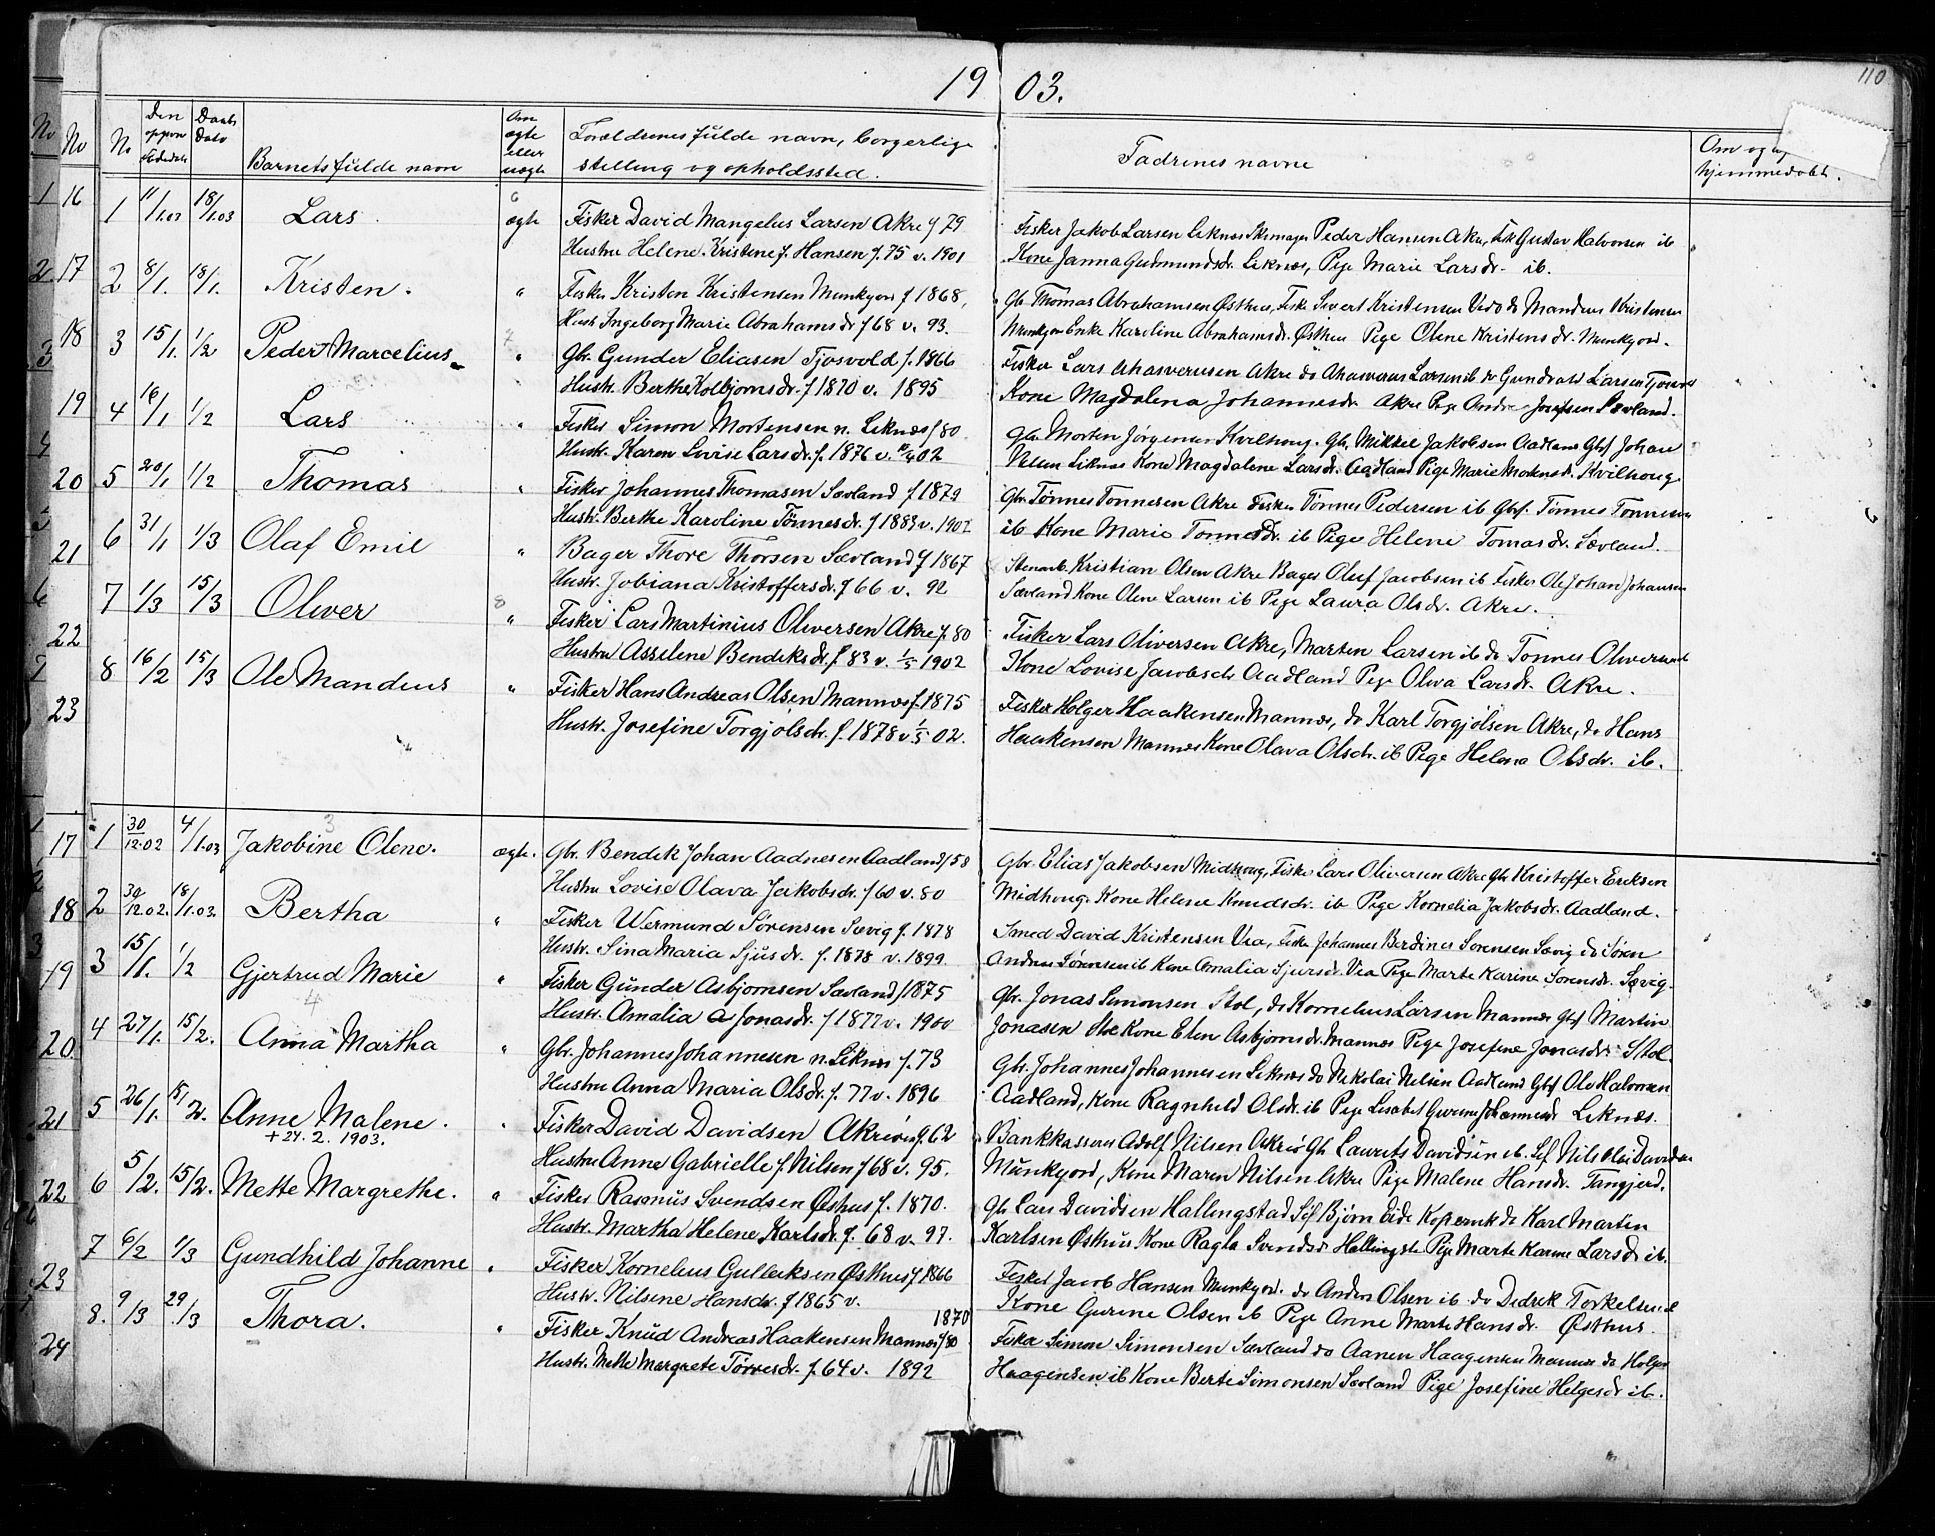 110
19 03.
No
No
No
Den opgivne fødedato
Daabs Dato
Barnets fulde navn
Om ægte eller uægte
Forældrenes fulde navn, borgerlige
stilling og opholdssted.
Fadrenes navne
Om og
hjemmedøbt.
1 16
1 11/1.03 18/1.03 Lars ægte Fisker David Mangelus Larsen Akre f 79 Fisker Jakob Larsen Liknæs Skomager Peder Hansen Akre, Fisk Gustav Halvorsen ib
Hustru Helene Kristine f. Hansen f. 75 v. 1901 Kone Janna Gudmundsdr. Liknæs, Pige Marie Larsdr. ib.
2 17
2 8/1. 18/1. Kristen. " Fisker Kristen Kristensen Munkejord f 1868, Gbr Thomas Abrahamsen Østhus, Fisk. Sivert Kristensen Vedø do Mandus Kristensen
Hust. Ingeborg Marie Abrahamsdr f 68 v. 93. Munkejord Enke Karoline Abrahamsdr. Østhus Pige Olene Kristensdr. Munkejord.
3 18
3 15/1. 1/2 Peder Marcelius " Gbr. Gunder Eliasen Tjosvold f. 1866 Fisker Lars Ahasverusen Akre do Ahasverus Larsen ib do Gundvald Larsen
Hustr. Berthe Kolbjørnsdr. f 1870 v. 1895 Kone Magdalena Johannesdr Akre Pige Josefsen Sævland.
4 19
4 16/1 1/2 Lars " Fisker Simon Mortensen n. Liknæs f 80. Gbr. Morten Jørgensen Kvilhoug. Gbr. Mikkel Jakobsen Aadland Gbf Johan
Hustr. Karen Lovise Larsdr. f. 1876 v. 02 Liknæs Kone Magdalene Larsdr. Aadland Pige Marie Mortensdr. Kvilhoug
5 20
5 20/1 1/2 Thomas " Fisker Johannes Thomasen Sævland f 1879 Gbr. Tønnes Tønnesen Akre Fisker Tønnes Pedersen ib Gbf. Tønnes Tønnesen
Hustr. Berthe Karoline Tønnesdr. f 1883 v. 1902 ib Kone Marie Tønnesdr. ib Pige Helene Tomasdr. Sævland.
21
6 31/1 1/3 Olaf Emil " Bager Thore Thorsen Sævland f 1867 Stenarb. Kristian Olsen Akre Bager Oluf Jacobsen ib Fisker Ole Johan Johansen
Hustr. Jobiana Kristoffersdr. f 66 v. 92 Sævland Kone Olene Larsen ib Pige Laura Olsdr. Akre.
6 22
7 1/3 15/3 Oliver " Fisker Lars Martinius Oliversen Akre f. 80 Fisker Lars Oliversen Akre, Marten Larsen ib do Tønnes Oliversen ib
Hustru Asselene Bendiksdr. f 83 v. 1/5 1902 Kone Lovise Jacobsdr Aadland Pige Oliva Larsdr. Akre.
7 23
8 16/2 15/3 Ole Mandius " Fisker Hans Andreas Olsen Mannæs f. 1875 Fisker Holger Haakensen Mannæs, do Karl Torgjølsen Akre, do Hans
Hustr. Josefine Torgjølsdr. f. 1878 v 1/5 02. Haakensen Mannæs Kone Olava Olsdr. ib Pige Helena Olsdr. ib.
17
1 30/12.02 4/1.03 Jakobine Olene. ægte. Gbr. Bendik Johan Aadnesen Aadland f 58 Gbr. Elias Jakobsen Midhoug, Fisker Lars Oliversen Akre Gbr Kristoffer Eriksen
Hustru Lovise Olava Jakobsdr. f 60 v. 80 Midhoug. Kone Helene Knudsdr. ib Pige Kornelia Jakobsdr. Aadland.
18
2 30/12.02. 18/1.03. Bertha " Fisker Wermund Sørensen Sævig f. 1878 Smed David Kristensen Vea, Fisker Johannes Berdines Sørensen Sævig do Søren
Hustr. Sina Maria Sjursdr. f. 1878 v. 1899. Andreas Sørensen ib Kone Amalia Sjursdr. Vea Pige Marte Karine Sørensdr. Sævig.
19
3 15/1. 1/2 Gjertrud Marie " Fisker Gunder Asbjørnsen Sævland f 1875 Gbr. Jonas Simonsen Stol, do Kornelius Larsen Mannæs Gbf Martin
Hustr. Amalia Jonasdr. f 1877 v. 1900 Jonasen Stol Kone Elen Asbjørnsdr. Mannæs Pige Josefine Jonasdr. Stol.
20
4 27/1. 15/2. Anna Martha " Gbr. Johannes Johannesen n. Liknæs f. 73 Gbr. Johannes Johannesen Liknæs do Nikolai Nilsen Aadland Gbf Ole Halvorsen
Hustru Anna Maria Olsdr. f. 77 v. 1896 Aadland, Kone Ragnhild Olsdr. ib Pige Lisabet Gurine Johannesdr Liknæs.
21
5 26/1. 15/2. Anne Malene. Fisker David Davidsen Akrevig f. 62 Bankkasserer Adolf Nilsen Akre Gbr Laurits Davidsen ib. Nils Olai Davidsen
+ 24. 2. 1903.
Hustru Anne Gabrielle f. Nilsen f 68 v. 95. Munkejord, Kone Maren Nilsen Akre Pige Malene Hansdr. Tangjerd.
22
6 5/2. 15/2. Mette Margrethe. " Fisker Rasmus Svendsen Østhus f. 1870. Gbr Lars Davidsen Hallingstad Bjørn Eide Kopervik do Karl Martin
Hustr. Martha Helene Karlsdr. f. 68 v. 97. Karlsen Østhus Kone Ragla Svendsdr Hallingst. Pige Marte Karine Larsdr ib.
23
7 6/2 1/3 Gundhild Johanne " Fisker Kornelius Gulleiksen Østhus f 1866 Fisker Jacob Hansen Munkejord. do Anders Olsen ib. do Didrik Torkelsen ib
Hustr. Nilsine Hansdr. f 1865 v. Kone Gurine Olsen ib Pige Anne Marte Hansdr. Østhus.
24
8. 9/3 29/3 Thora. " Fisker Knud Andreas Haakensen Mannæs f 80 1870 Fisker Simon Simonsen Sævland do Aanen Haagensen Mannæs do Holger
Hustr. Mette Margrete Tørresdr. f. 64 v. 1892 Haagensen ib Kone Berte Simonsen Sævland Pige Josefine Helgesdr ib.